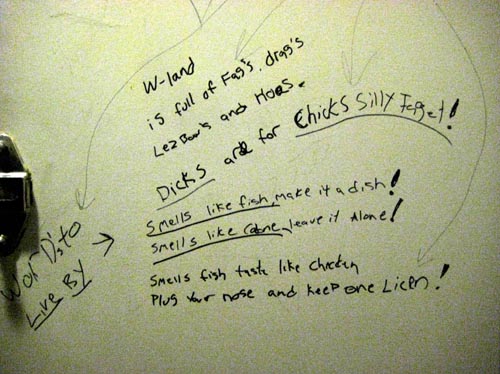 W-land
is full of Fag's, drag's
LezBow's and Hoes.
Dicks are for Chicks Silly Fagget!
Smells like fish make it a dish!
Smells like colone, leave it Alone!
Smells fish taste like chicken
Plug Your nose and keep one Licen!
Wor D's to
Live By